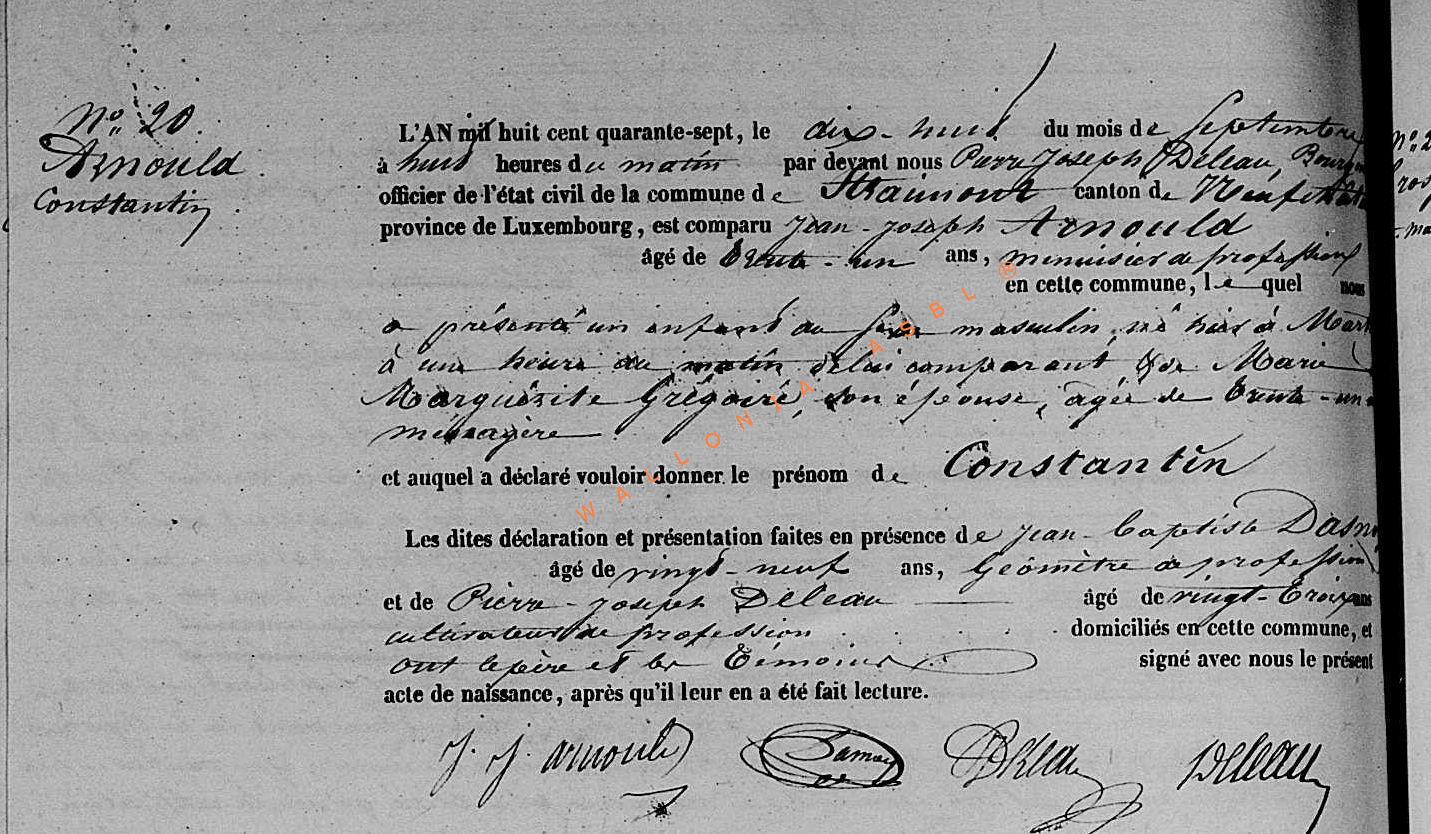 N° 20.
Arnould
Constantin
L'AN mil huit cent quarante-sept, le dix-huit du mois de Septembre
à huit heures du matin par devant nous Pierre Joseph Deleau,
officier de l'état civil de la commune de Straimont canton de
province de Luxembourg, est comparu Jean-Joseph Arnould
âgé de trente-un ans, menuisier de profession
en cette commune, lequel nous
a présenté un enfant du sexe masculin, né hier à
à une heure du matin de lui comparant & de Marie
Marguérite Grégoire, son épouse, agée de trente-un
ménagère
et auquel a déclaré vouloir donner le prénom de Constantin
Les dites déclaration et présentation faites en présence de Jean-Baptiste
âgé de vingt-neuf ans, Géomètre de profession
et de Pierre-Joseph Deleau âgé de vingt-trois ans
cultivateur de profession domiciliés en cette commune, et
ont le père et les témoins signé avec nous le présent
acte de naissance, après qu'il leur en a été fait lecture.
J. J. arnould Deleau Deleau
WALLONIA ASBL ®